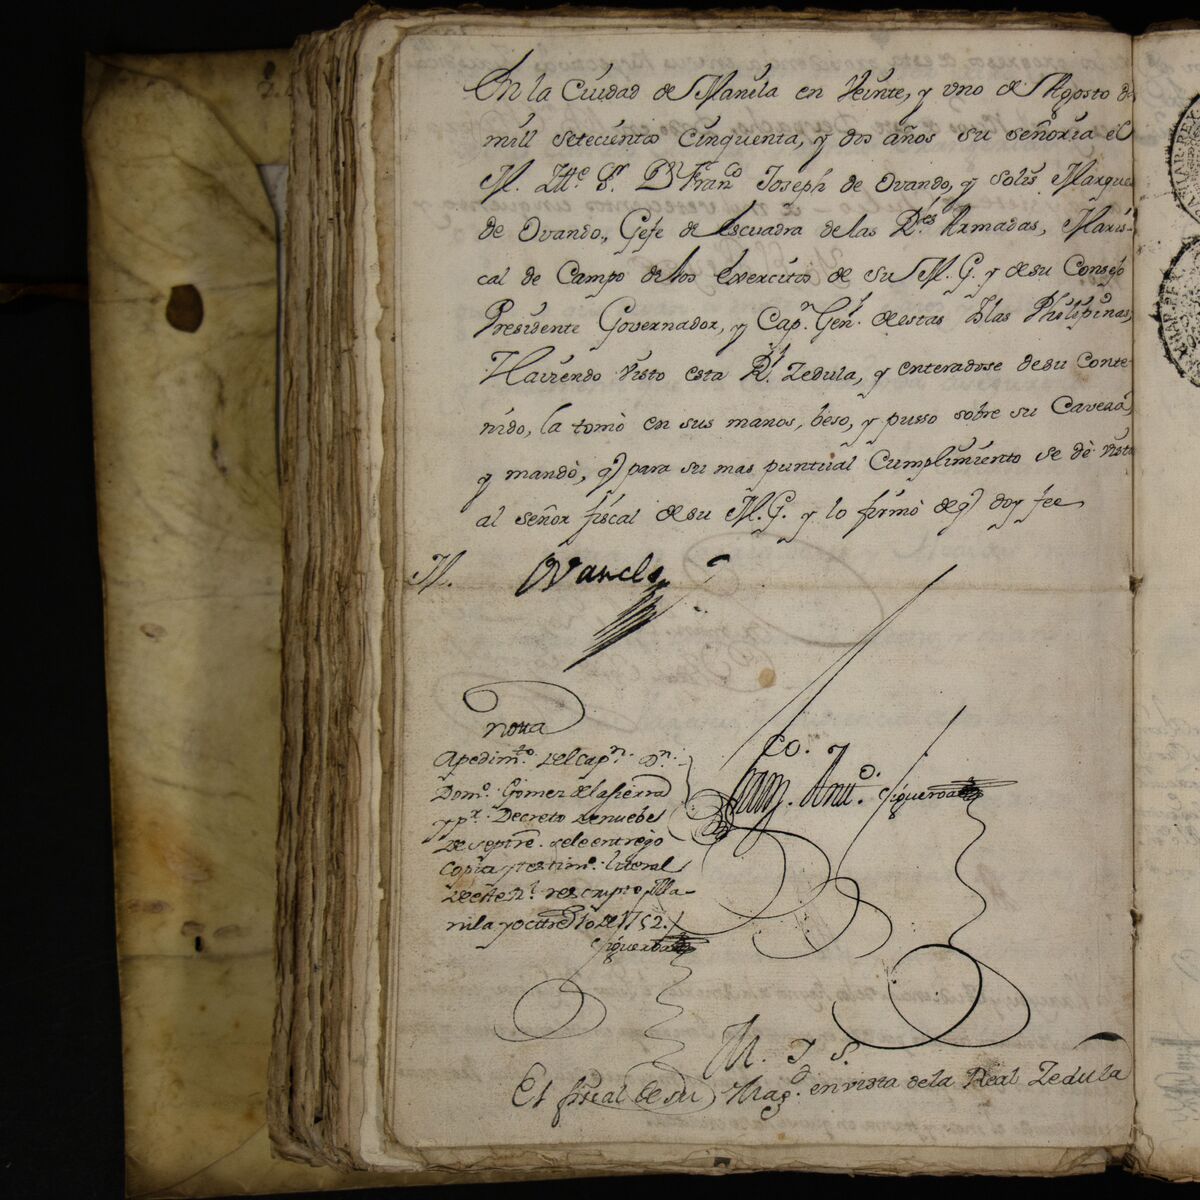 En la Ciudad de Manila en Veinte, y uno de Agosto de
mill setecientos Cinquenta, y dos años su señoria el
M. Ille. Sr. Dn Franco Joseph de Ovando, y solis Marques
de Ovando, Gefe de escuadra de las Rles Armadas, Maris-
cal de Campo de los exercitos de su M. G. y de su Consejo
Presidente Governador, y Capn. Genl. de estas Islas Philipinas,
Haviendo visto esta Rl. Zedula, y enteradose de su Conte-
nido, la tomò en sus manos, beso, y pusso sobre su Caveza,
y mandò, q) para su mas puntual Cumplimiento se dè vista
al señor fiscal de su M. G. y lo firmò de q) doy fee
M. Ovando
nota
Apedimto. del capn. Dn.
Domo. Gomez de la sierra
y pr. Decreto de nuebe
de septre. se le entregò
copia y testimo. literal
de este Rl. rescripto Ma-
nila y octre 10 de 1752.
Figueroa
Co. 7
Fran. Anto. Figueroa
M. I S.
El fiscal de su Mag. en vista de la Real Zedula